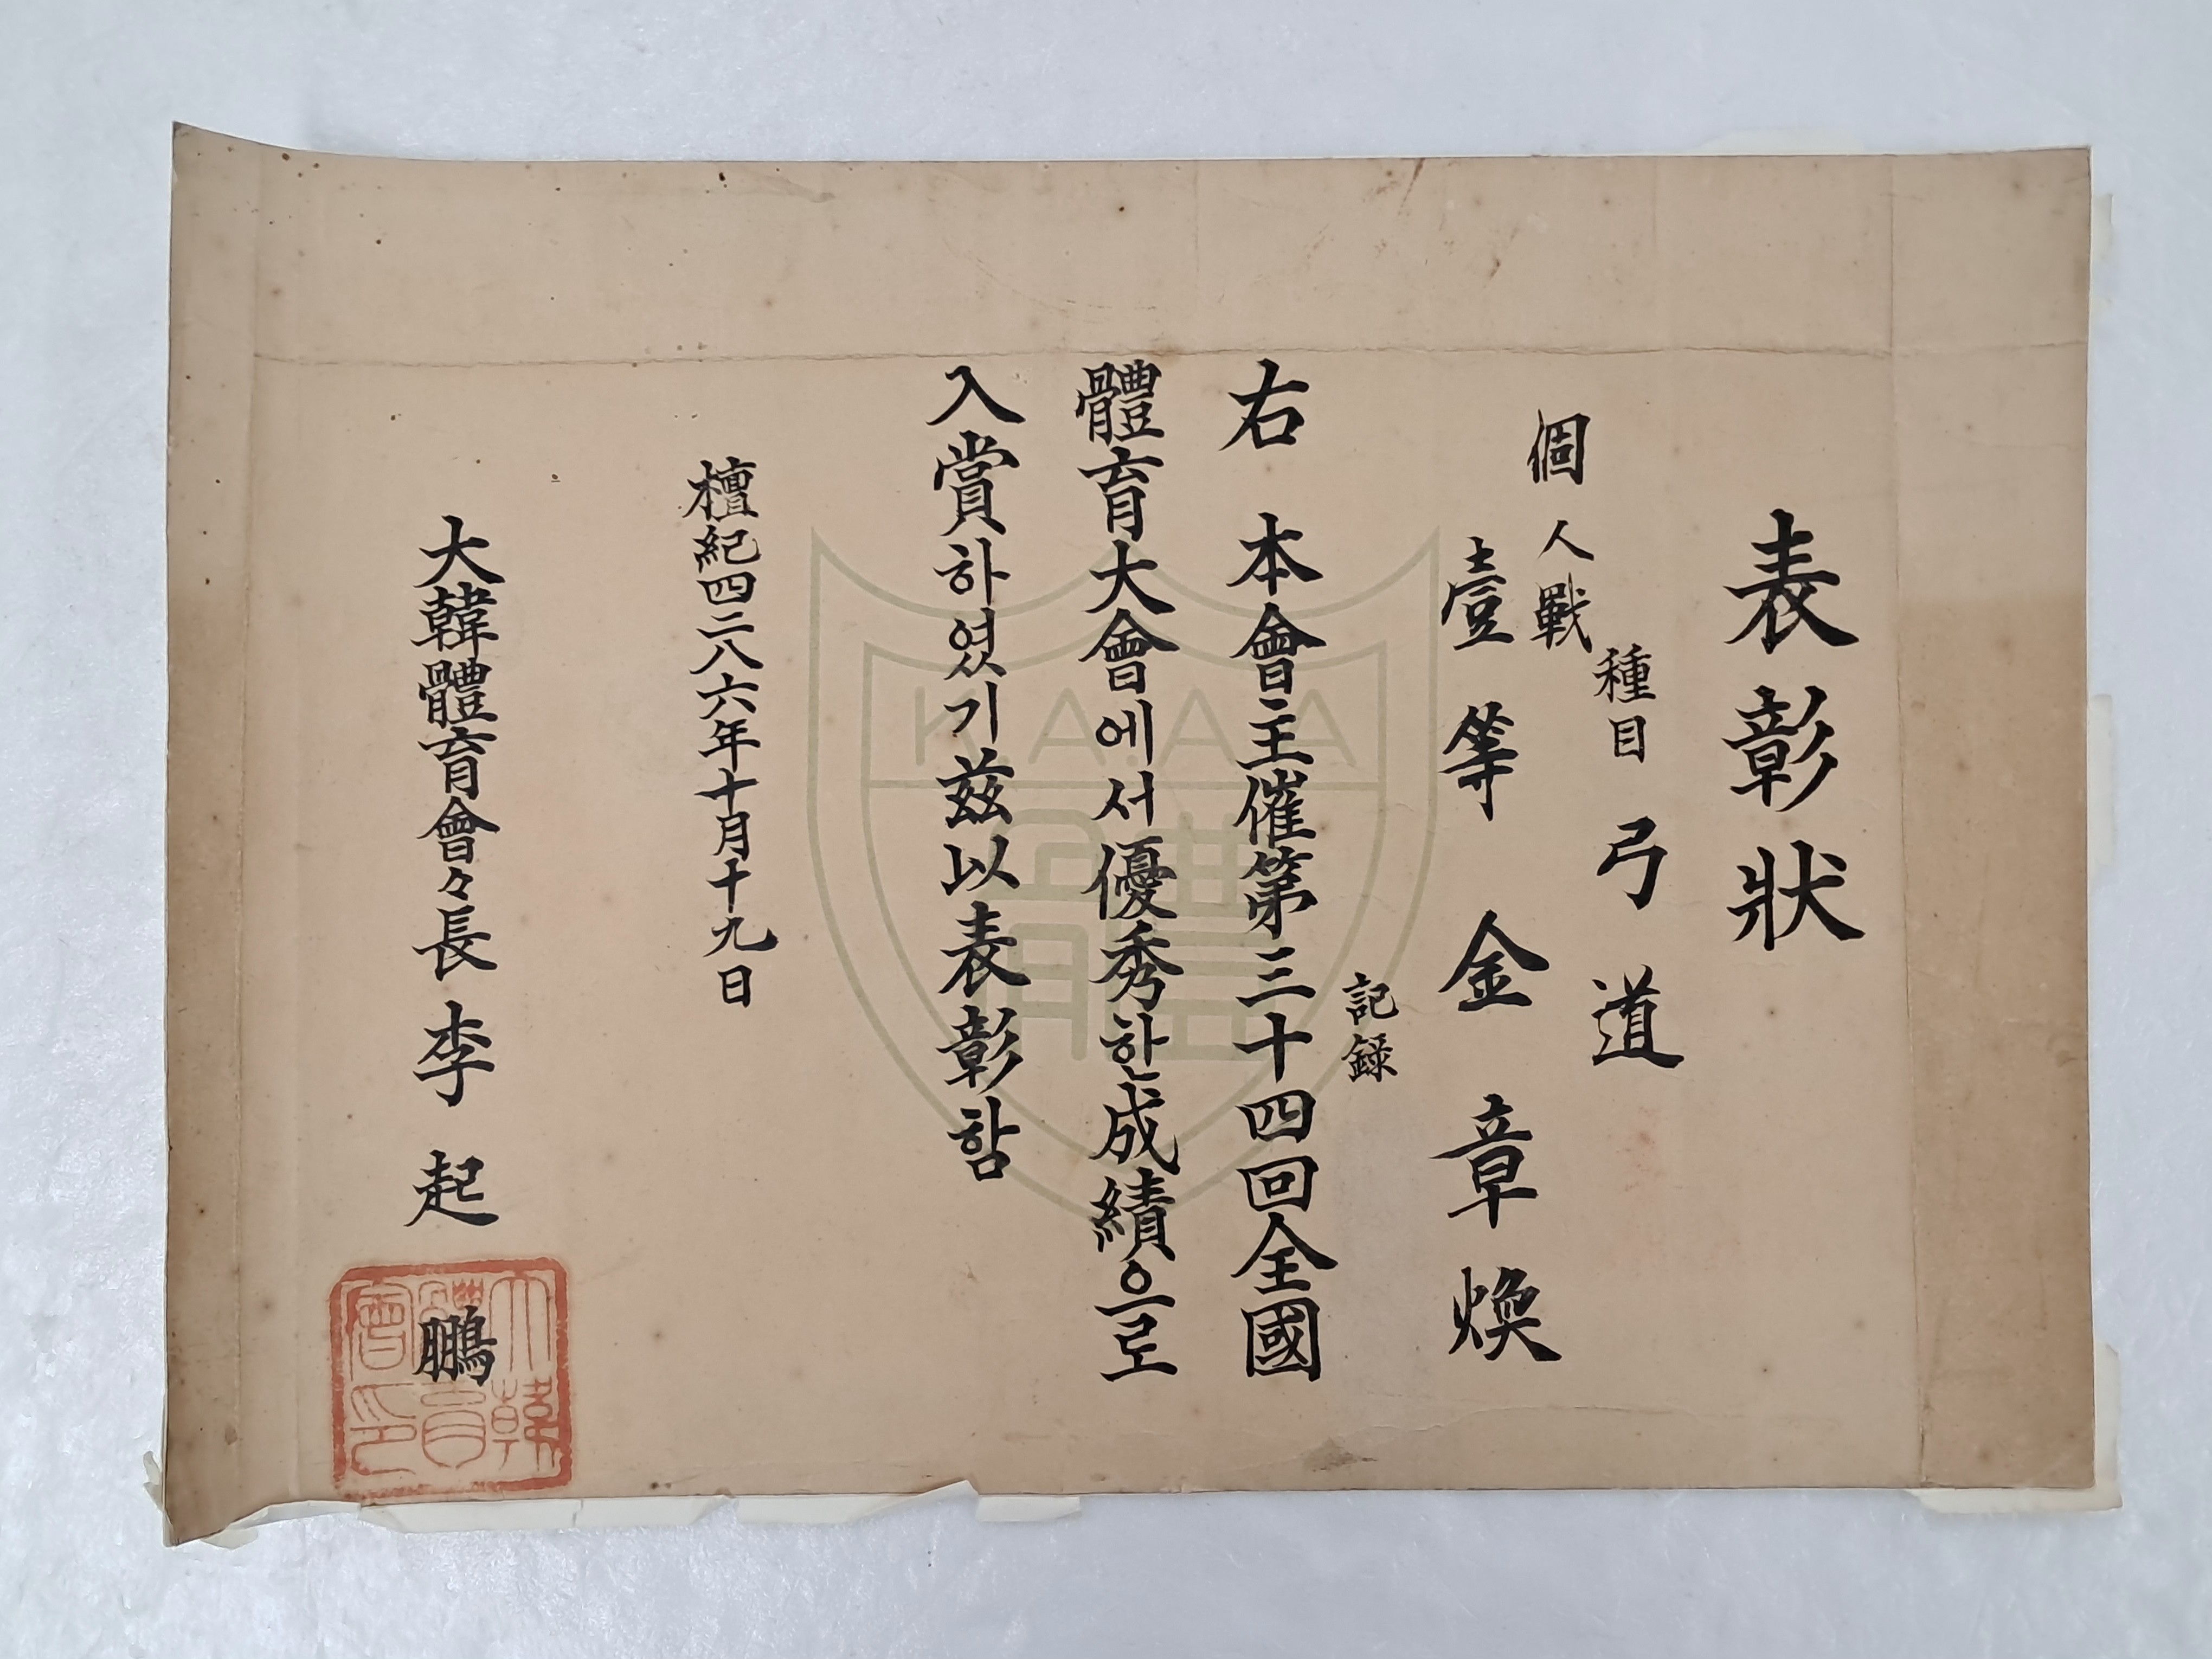 表彰狀
種目 弓道
個人戰
壹等 金章煥
記錄
右 本會主催第三十四回全國
體育大會에서優秀한成績으로
入賞하였기玆以表彰함
檀紀四二八六年十月十九日
大韓體育會々長 李起鵬
大韓體育會印
K.A.A.A
體育